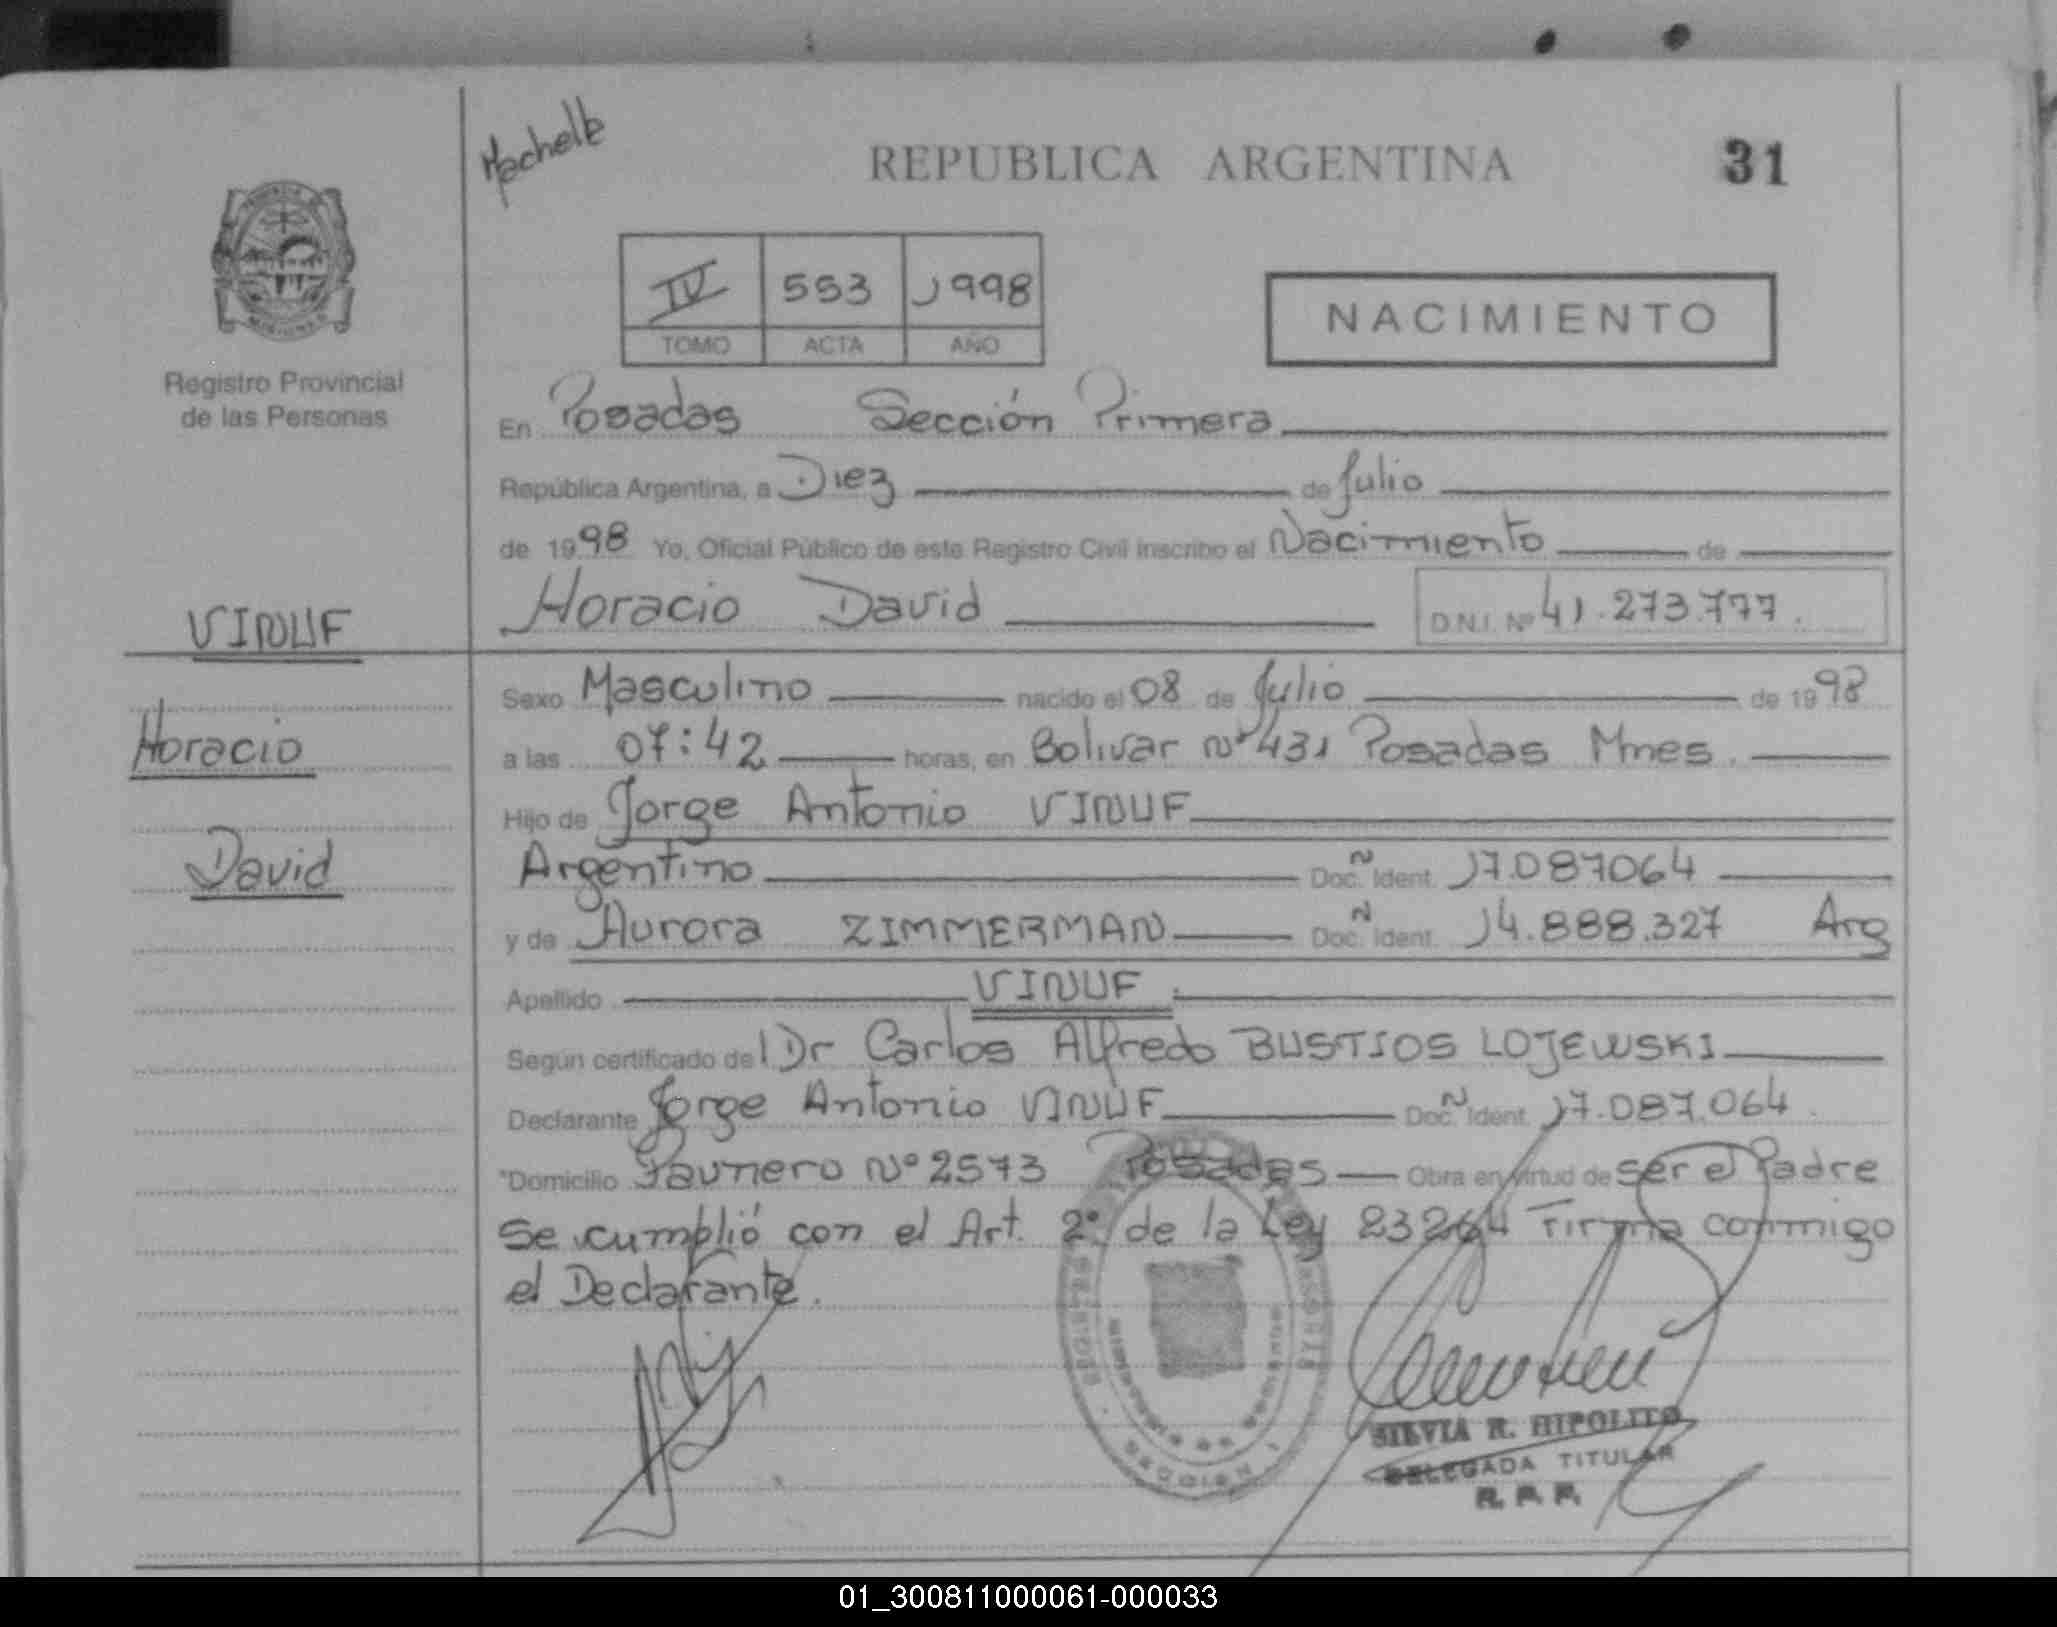 Machelb
REPUBLICA ARGENTINA 31
IV 553 1998
TOMO ACTA AÑO
NACIMIENTO
MISIONES
Registro Provincial
de las Personas
En Posadas Sección Primera
República Argentina, a Diez de Julio
de 1998 Yo, Oficial Público de este Registro Civil inscribo el Nacimiento de
Horacio David D.N.I. Nº 41.273.777.
VINUF
Horacio
David
Sexo Masculino nacido el 08 de Julio de 1998
a las 07:42 horas, en Bolivar Nº 431 Posadas Mnes.
Hijo de Jorge Antonio VINUF
Argentino Doc. Ident. 17.087064
y de Aurora ZIMMERMAN Doc. Ident. 14.888.327 Arg
Apellido VINUF.
Según certificado del Dr Carlos Alfredo BUSTIOS LOJEWSKI
Declarante Jorge Antonio VINUF Doc. Ident. 17.087.064.
Domicilio Paunero Nº 2573 Posadas Obra en virtud de ser el Padre
Se cumplió con el Art. 2º de la Ley 23264 Firma conmigo
el Declarante.
SILVIA R. HIPOLITO
DELEGADA TITULAR
R. P. P.
01_300811000061-000033